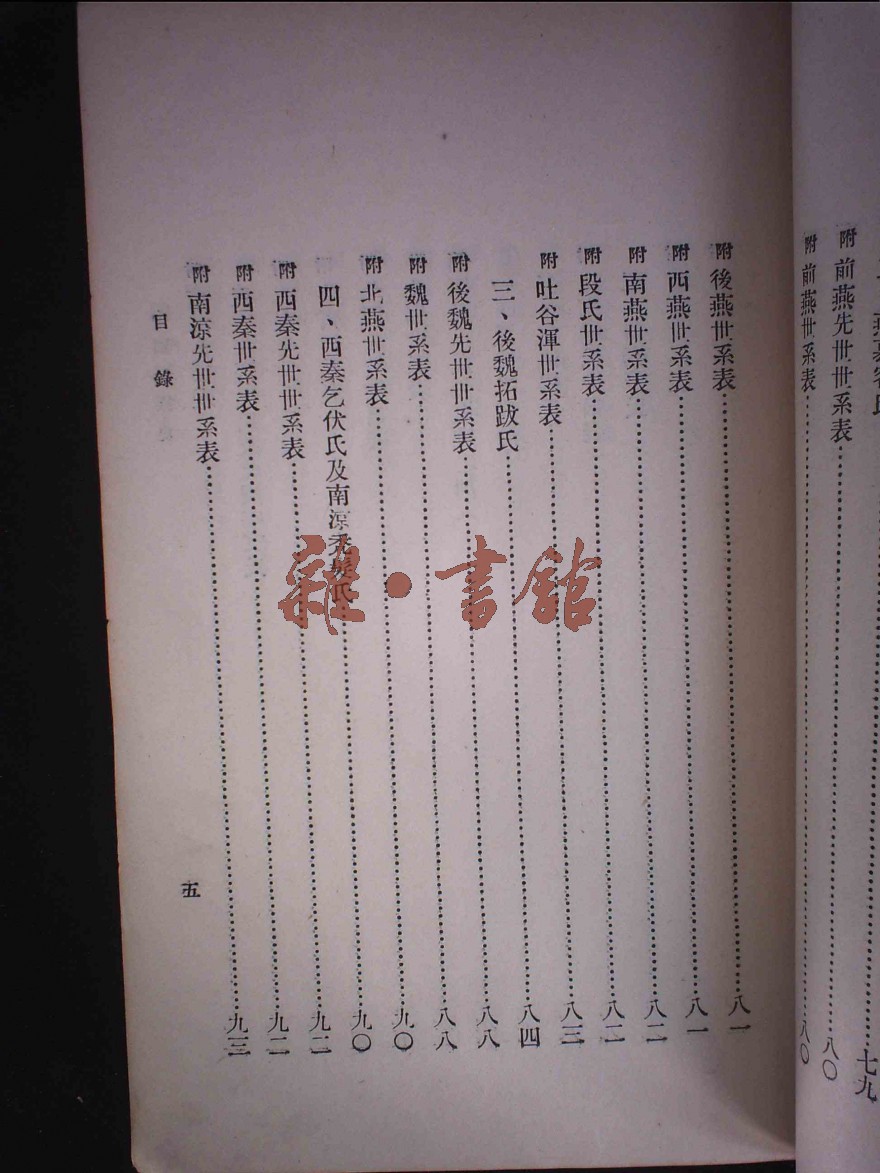 燕慕容氏……七九
附 前燕先世世系表……八〇
附 前燕世系表……八〇
附 後燕世系表……八一
附 西燕世系表……八一
附 南燕世系表……八二
附 段氏世系表……八二
附 吐谷渾世系表……八三
三、後魏拓跋氏……八四
附 後魏先世世系表……八八
附 魏世系表……八八
附 北燕世系表……九〇
四、西秦乞伏氏及南涼禿髮氏……九〇
附 西秦先世世系表……九二
附 西秦世系表……九二
附 南涼先世世系表……九三
目錄
五
雜·書館